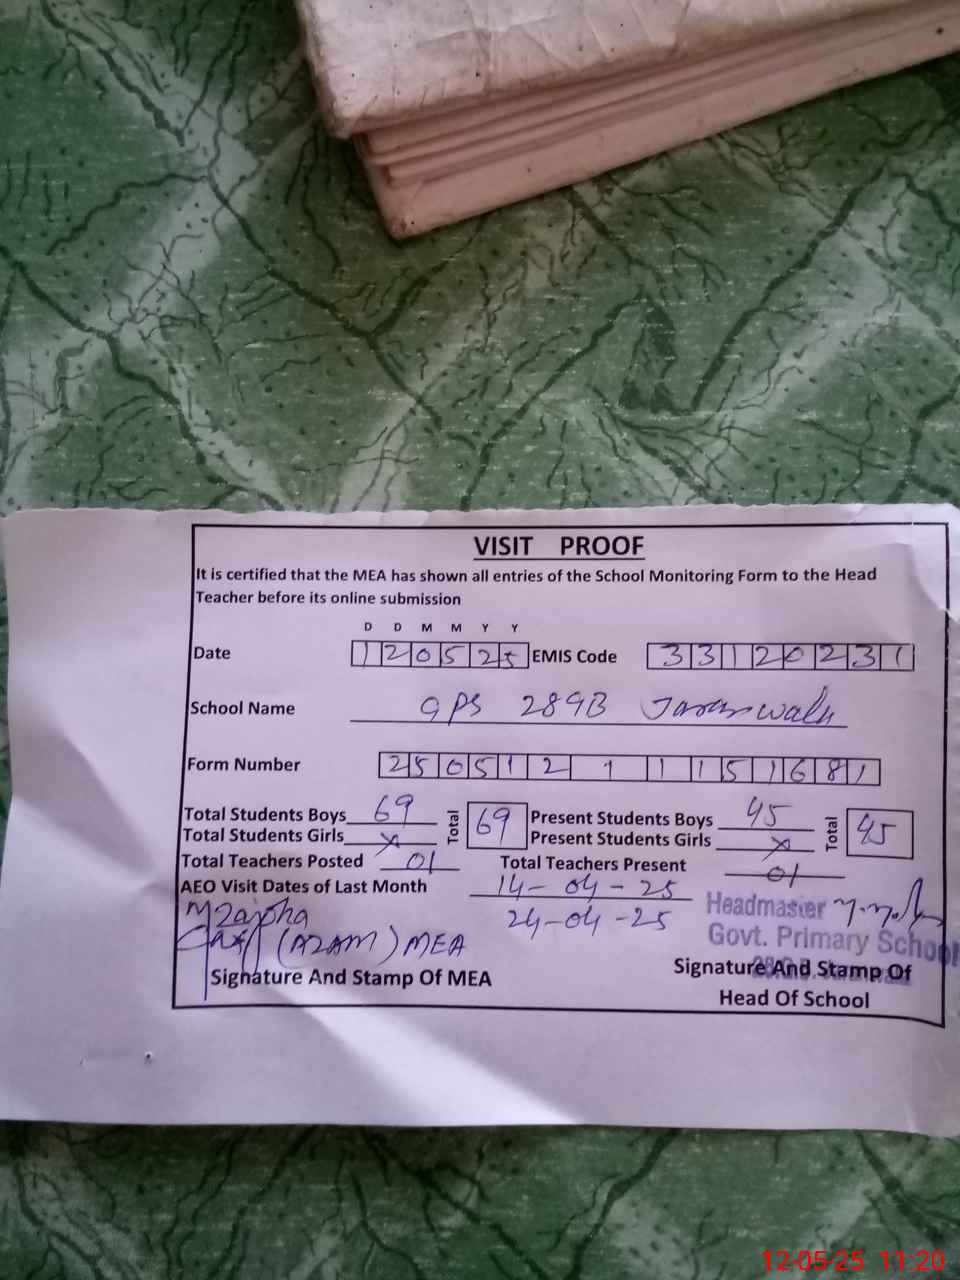 VISIT PROOF
It is certified that the MEA has shown all entries of the School Monitoring Form to the Head
Teacher before its online submission
D D M M Y Y
Date 120525 EMIS Code 33120231
School Name GPS 289B Jaranwala
Form Number 25051211151681
Total Students Boys 69 Total 69 Present Students Boys 45 Total 45
Total Students Girls x Present Students Girls x
Total Teachers Posted 01 Total Teachers Present 01
AEO Visit Dates of Last Month 14-04-25
24-04-25
Headmaster
Govt. Primary School
(AZAM) MEA
Signature And Stamp Of MEA
Signature And Stamp Of
Head Of School
12-05-25 11:20